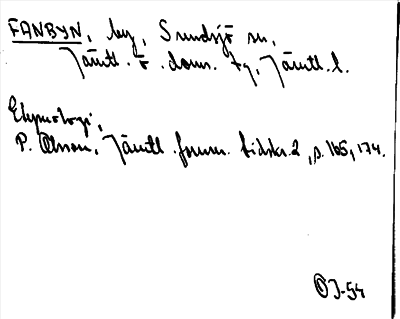 FANBYN, by, Sundsjö sn,
Jämtl. ö. doms. tg, Jämtl. l.
Etymologi,
P. Olsson, Jämtl. fornm. tidskr. 2, s. 165, 174.
OJ-54